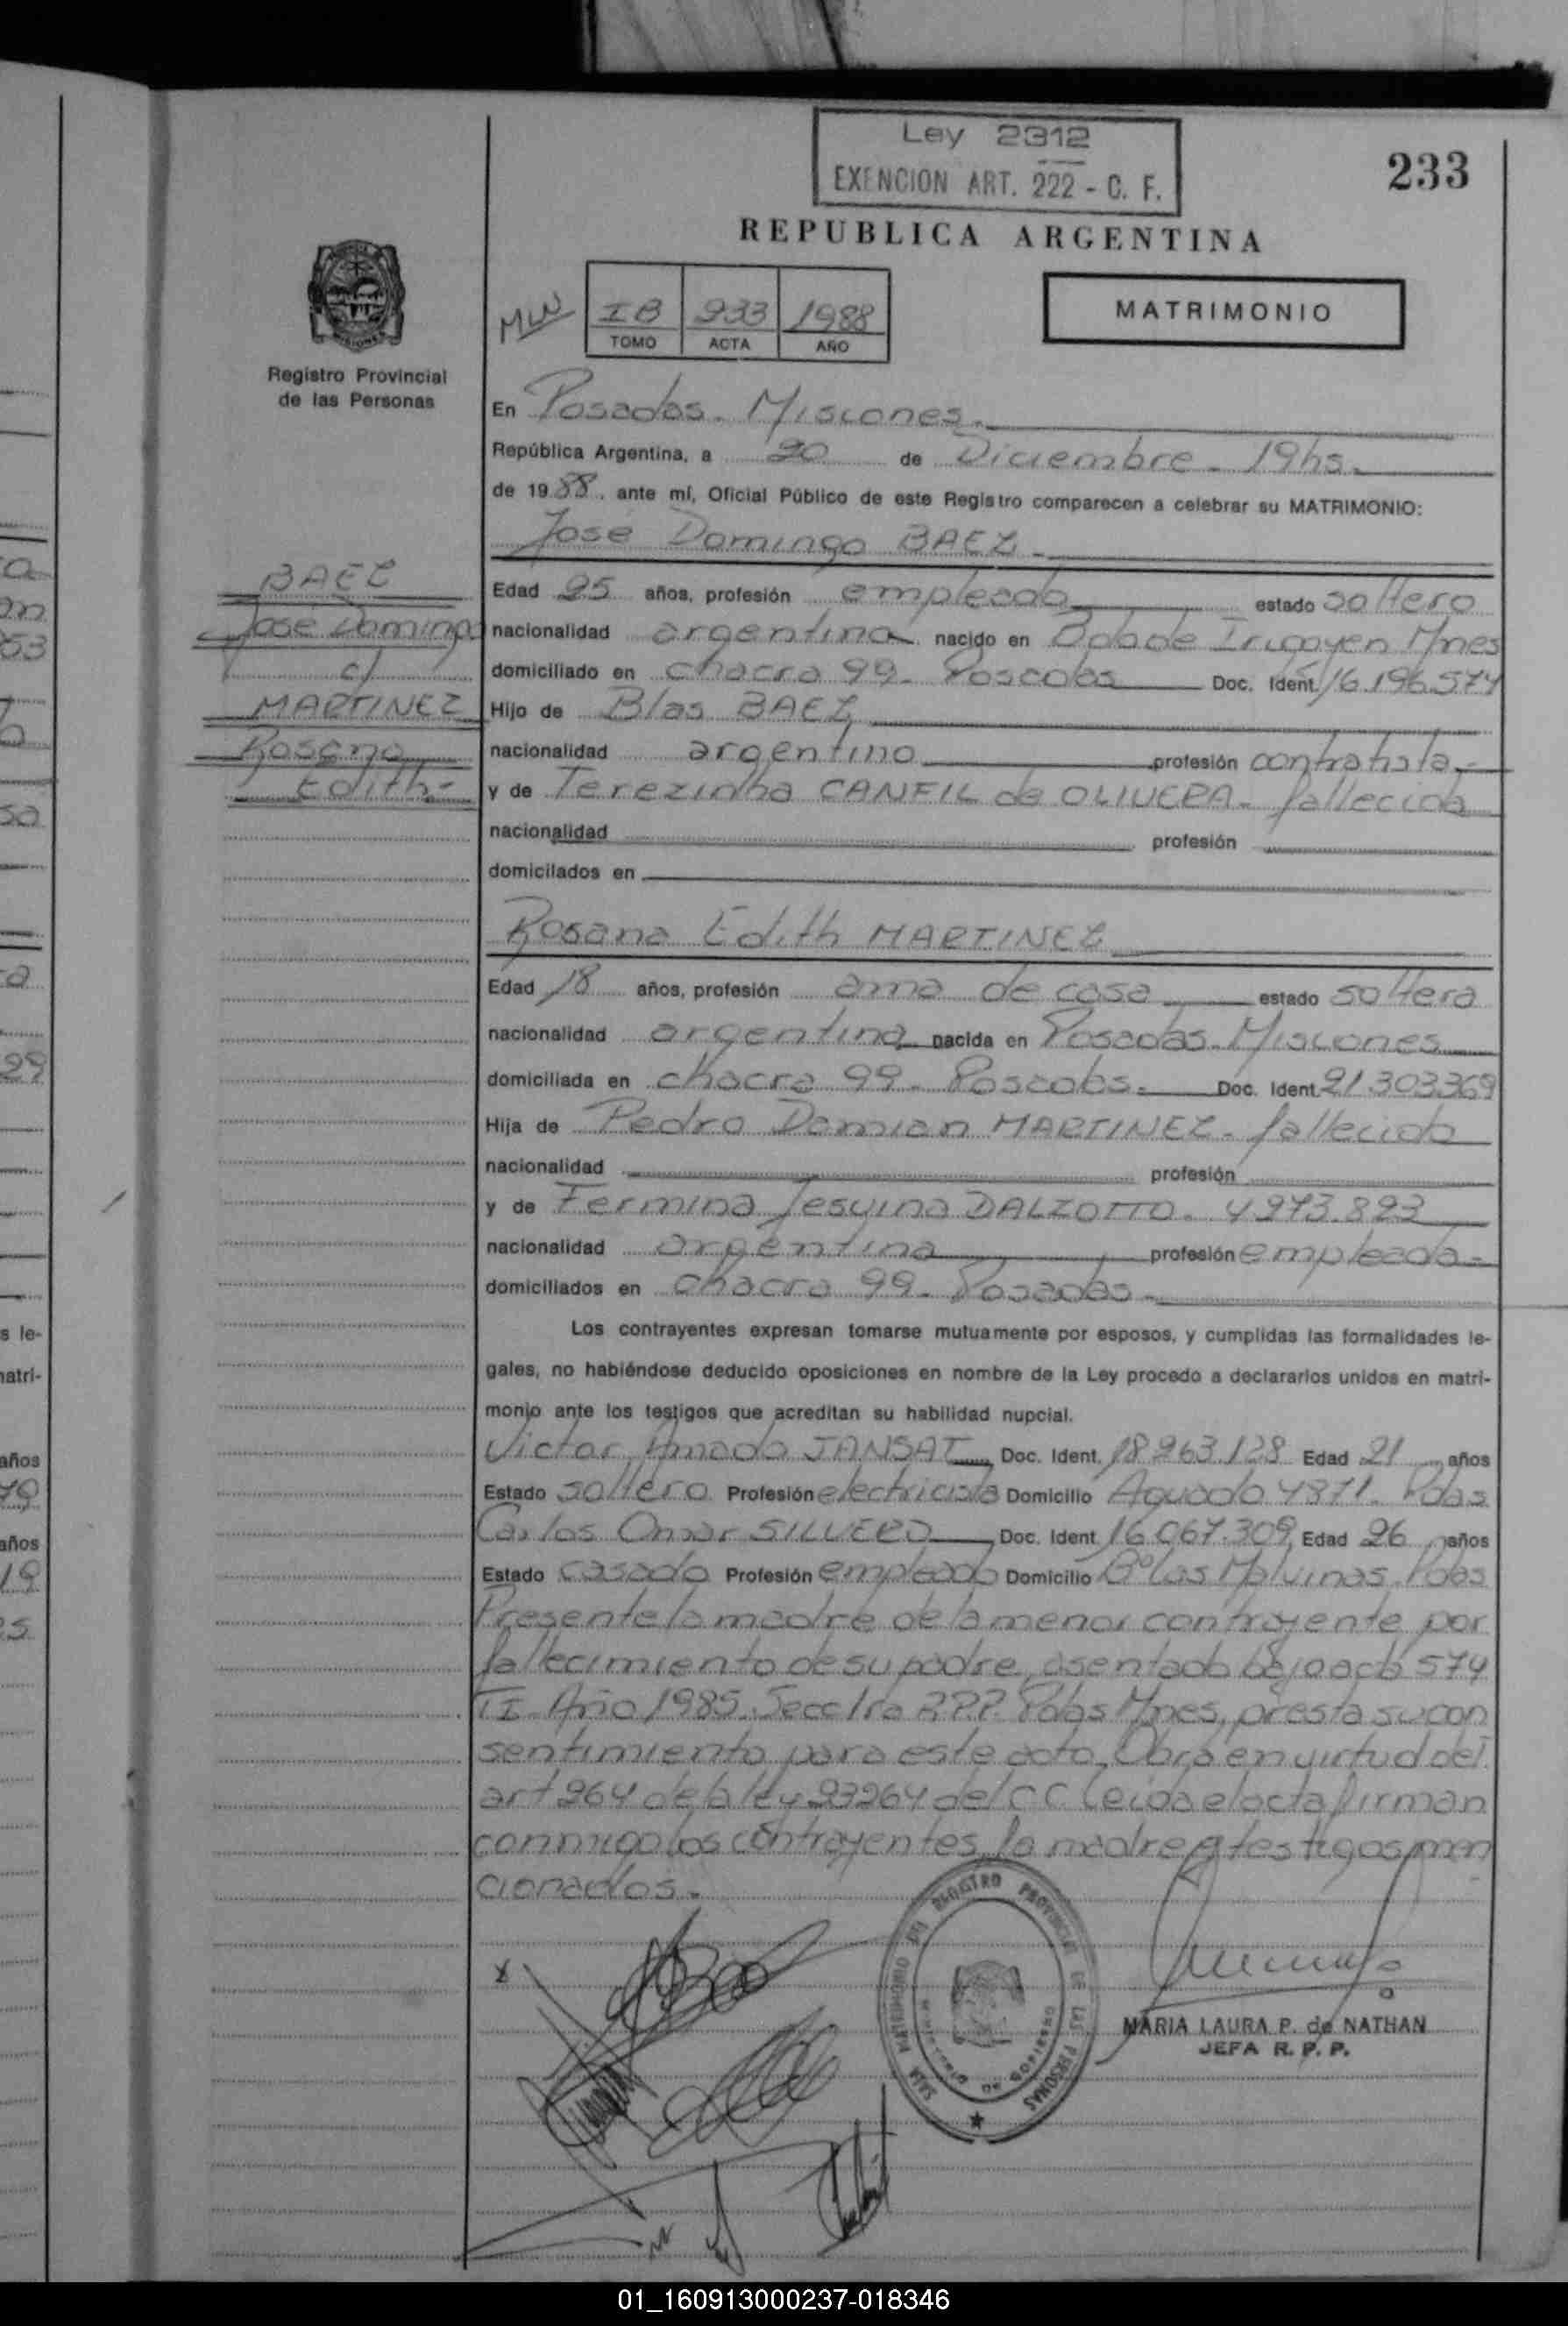 Ley 2312
EXENCION ART. 222 - C. F.
233
REPUBLICA ARGENTINA
IB 233 1988
TOMO ACTA AÑO
MATRIMONIO
Registro Provincial
de las Personas
En Posadas. Misiones.
República Argentina, a 20 de Diciembre. 19hs.
de 1988, ante mí, Oficial Público de este Registro comparecen a celebrar su MATRIMONIO:
José Domingo BAEZ
BAEZ
José Domingo
c/
MARTINEZ
Rosana
Edith
Edad 25 años, profesión empleado estado soltero
nacionalidad argentina nacido en Bdo de Irigoyen Mnes
domiciliado en chacra 99. Posadas Doc. Ident. 16.196.574
Hijo de Blas BAEZ
nacionalidad argentino profesión contratista
y de Terezinha CANFIL de OLIVERA. fallecida
nacionalidad profesión
domicilados en
Rosana Edith MARTINEZ
Edad 18 años, profesión ama de casa estado soltera
nacionalidad argentina nacida en Posadas. Misiones
domiciliada en chacra 99. Posadas. Doc. Ident. 21.303.369
Hija de Pedro Damian MARTINEZ. fallecido
nacionalidad profesión
y de Fermina Jesuina DALZOTTO. 4.973.823
nacionalidad argentina profesión empleada
domiciliados en chacra 99. Posadas.
Los contrayentes expresan tomarse mutuamente por esposos, y cumplidas las formalidades le-
gales, no habiéndose deducido oposiciones en nombre de la Ley procedo a declararlos unidos en matri-
monio ante los testigos que acreditan su habilidad nupcial.
Victor Amado JANSAT Doc. Ident. 18.263.128 Edad 21 años
Estado soltero Profesión electricista Domicilio Aguado 4871. Pdas
Carlos Omar SILVERO Doc. Ident. 16.067.309 Edad 26 años
Estado casado Profesión empleado Domicilio Bº Las Malvinas. Pdas
Presente la madre de la menor contrayente por
fallecimiento de su padre, asentado bajo acta 574
TI. Año 1985. Secc 1ra R.P.P. Pdas Mnes, presta su con
sentimiento para este acto. Obra en virtud del
art 264 de la ley 23264 del CC Leida el acta firman
conmigo los contrayentes, la madre y testigos men
cionados.
REGISTRO PROVINCIAL DE LAS PERSONAS
SALA MATRIMONIO
MARIA LAURA P. de NATHAN
JEFA R. P. P.
01_160913000237-018346